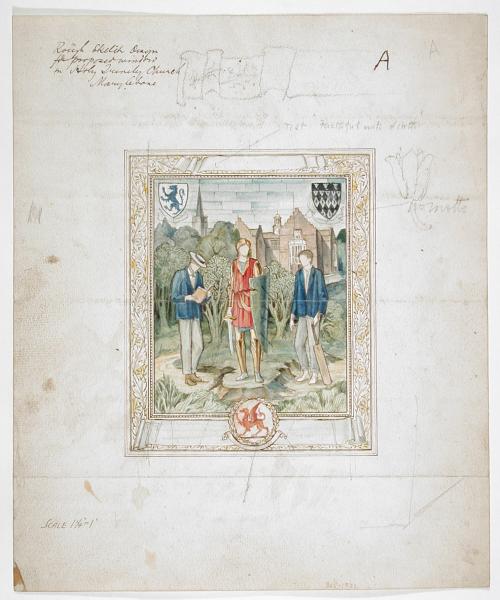 Rough Sketch Design
for proposed window
in Holy Trinity Church
Marylebone
A
A
Text "Faithful unto death"
No motto
SCALE 1½"=1'